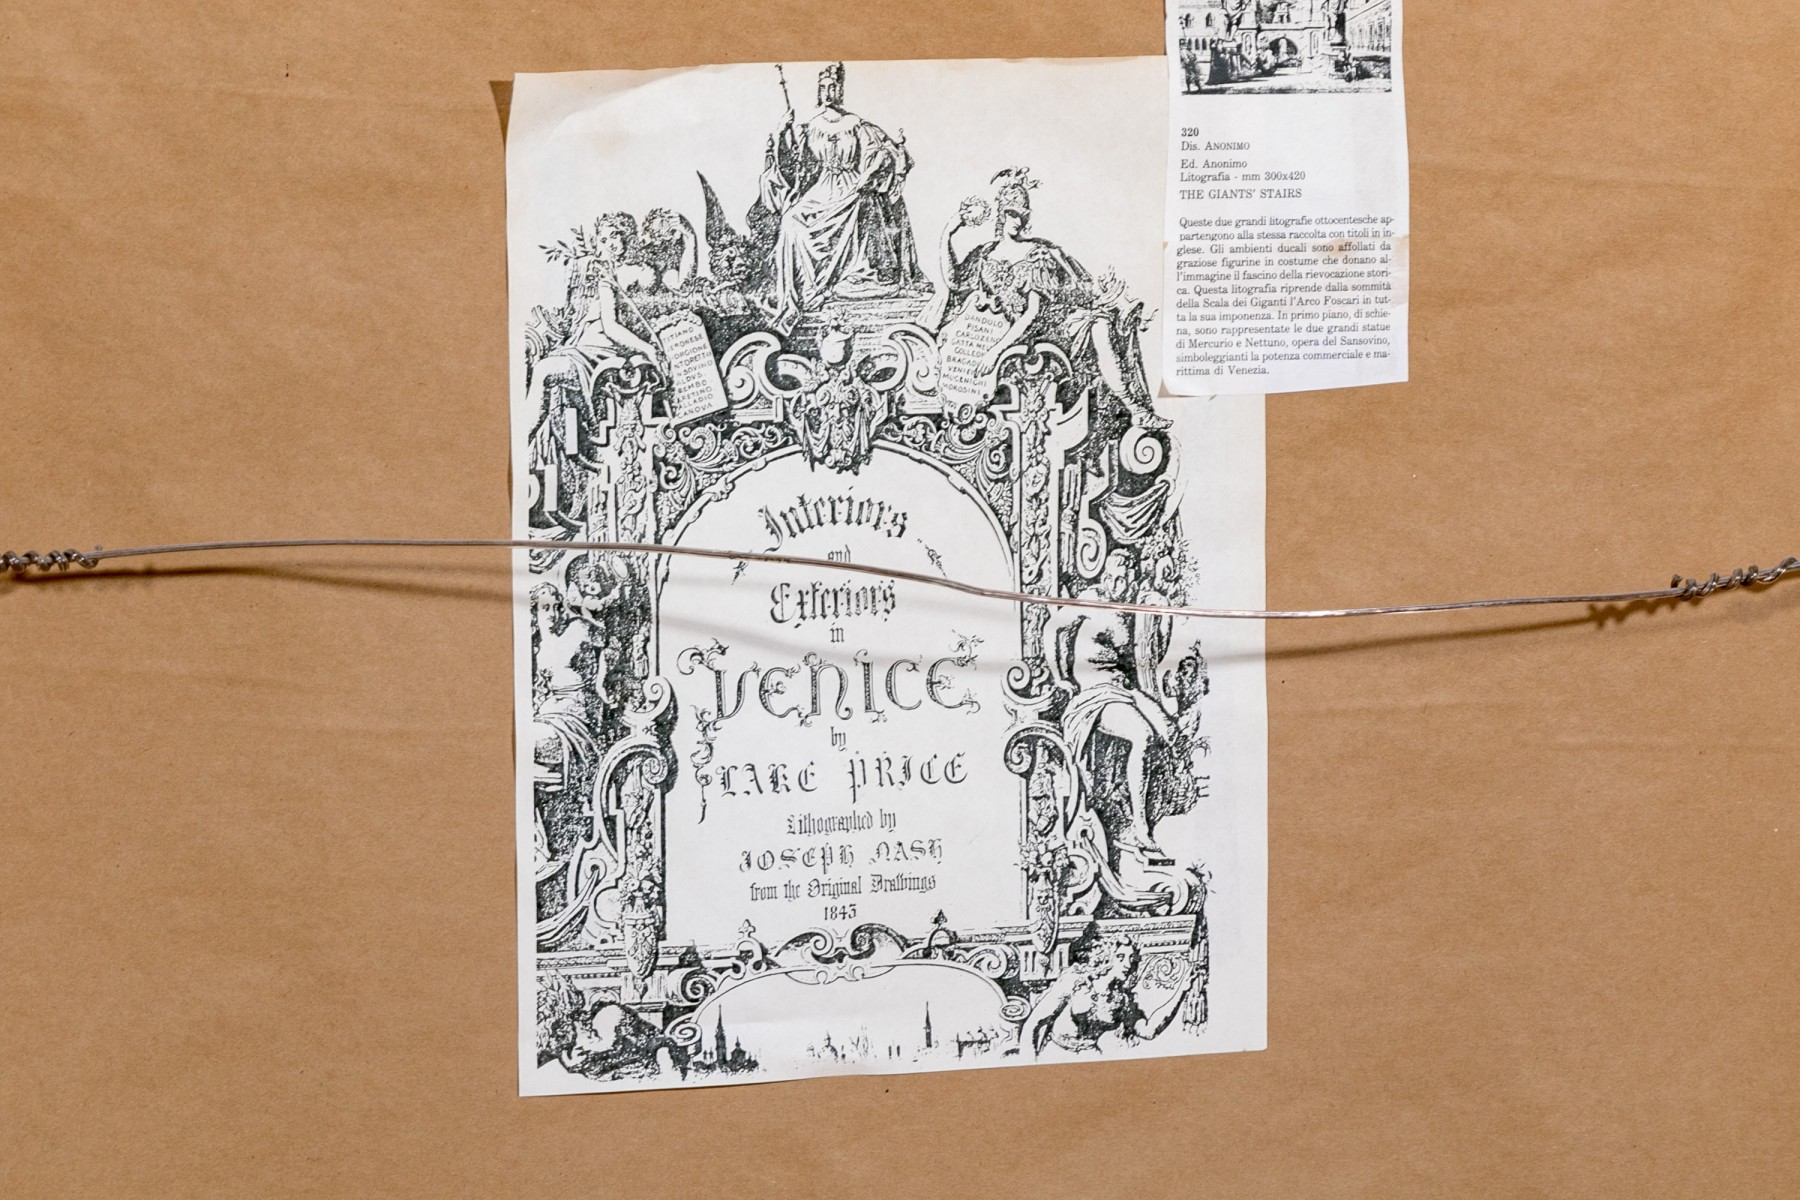 320
Dis. ANONIMO
Ed. Anonimo
Litografia - mm 300x420
THE GIANTS' STAIRS
Queste due grandi litografie ottocentesche ap-
partengono alla stessa raccolta con titoli in in-
glese. Gli ambienti ducali sono affollati da
graziose figurine in costume che donano al-
l'immagine il fascino della rievocazione stori-
ca. Questa litografia riprende dalla sommità
della Scala dei Giganti l'Arco Foscari in tut-
ta la sua imponenza. In primo piano, di schie-
na, sono rappresentate le due grandi statue
di Mercurio e Nettuno, opera del Sansovino,
simboleggianti la potenza commerciale e ma-
rittima di Venezia.
TIZIANO
VERONESE
GIORGIONE
TINTORETTO
SANSOVINO
ALDUS
BEMBO
ARETINO
PALLADIO
CANOVA
DANDULO
PISANI
CARLO ZENO
GATTA MEL
COLLEON
BRAGAD
VENIER
MOCENIGHI
MOROSINI
Interiors
and
Exteriors
in
VENICE
by
LAKE PRICE
Lithographed by
JOSEPH NASH
from the Original Drawings
1843